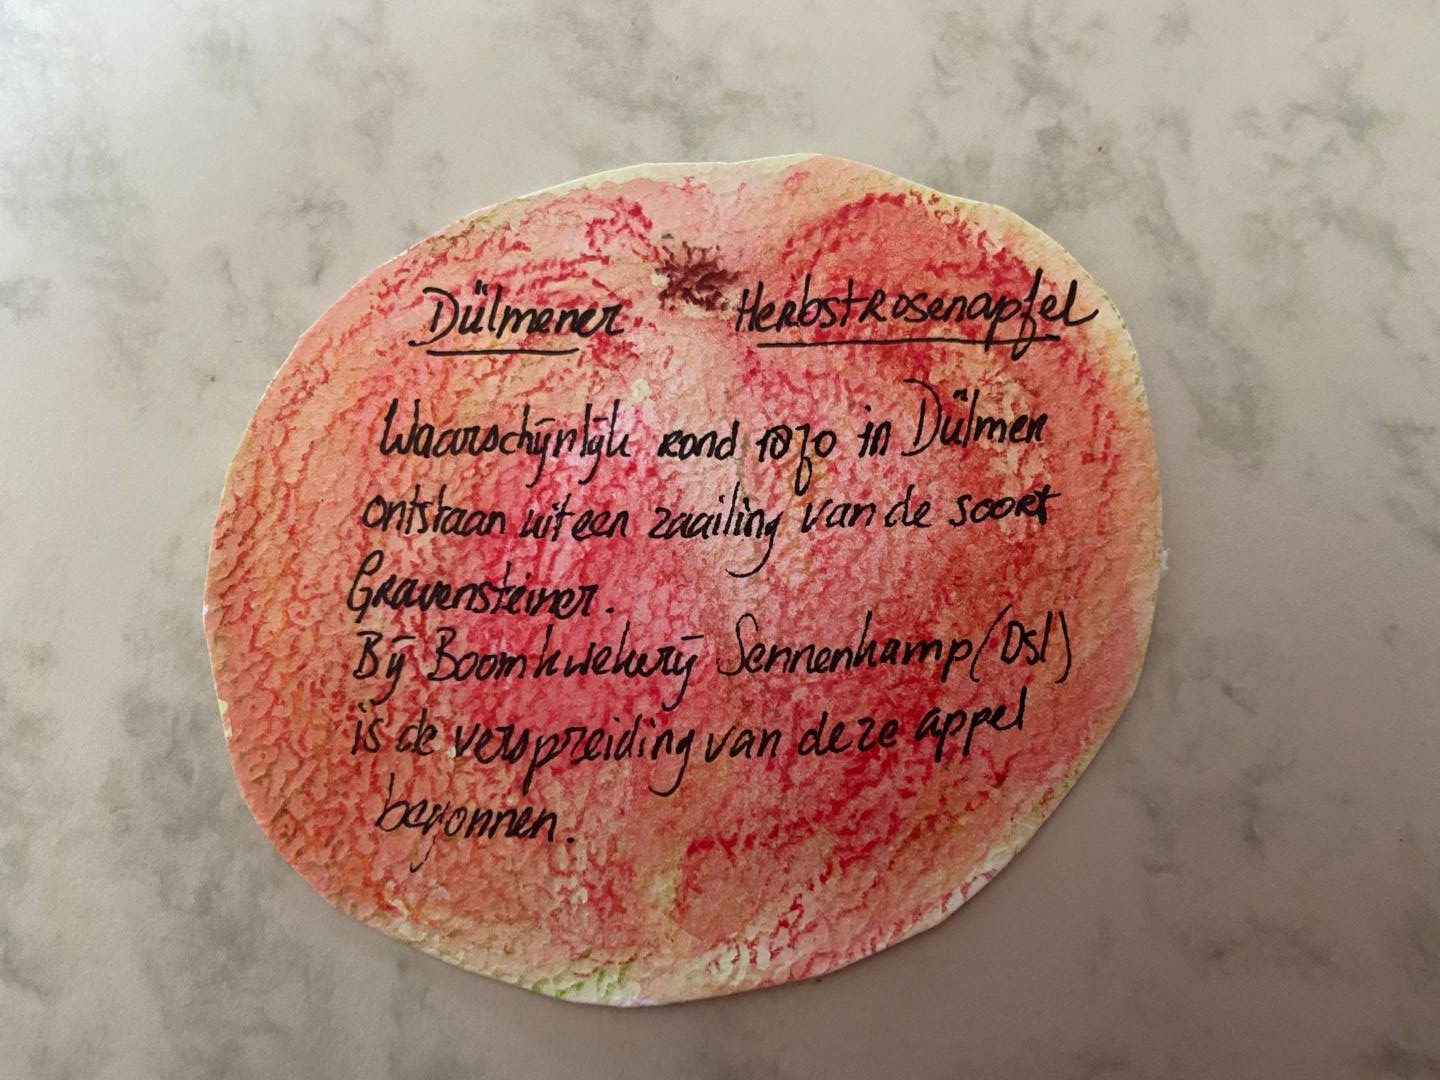 Dülmener Herbstrosenapfel
Waarschijnlijk rond 1870 in Dülmen
ontstaan uit een zaailing van de soort
Gravensteiner.
Bij Boomkwekerij Sennenkamp (Dsl)
is de verspreiding van deze appel
begonnen.